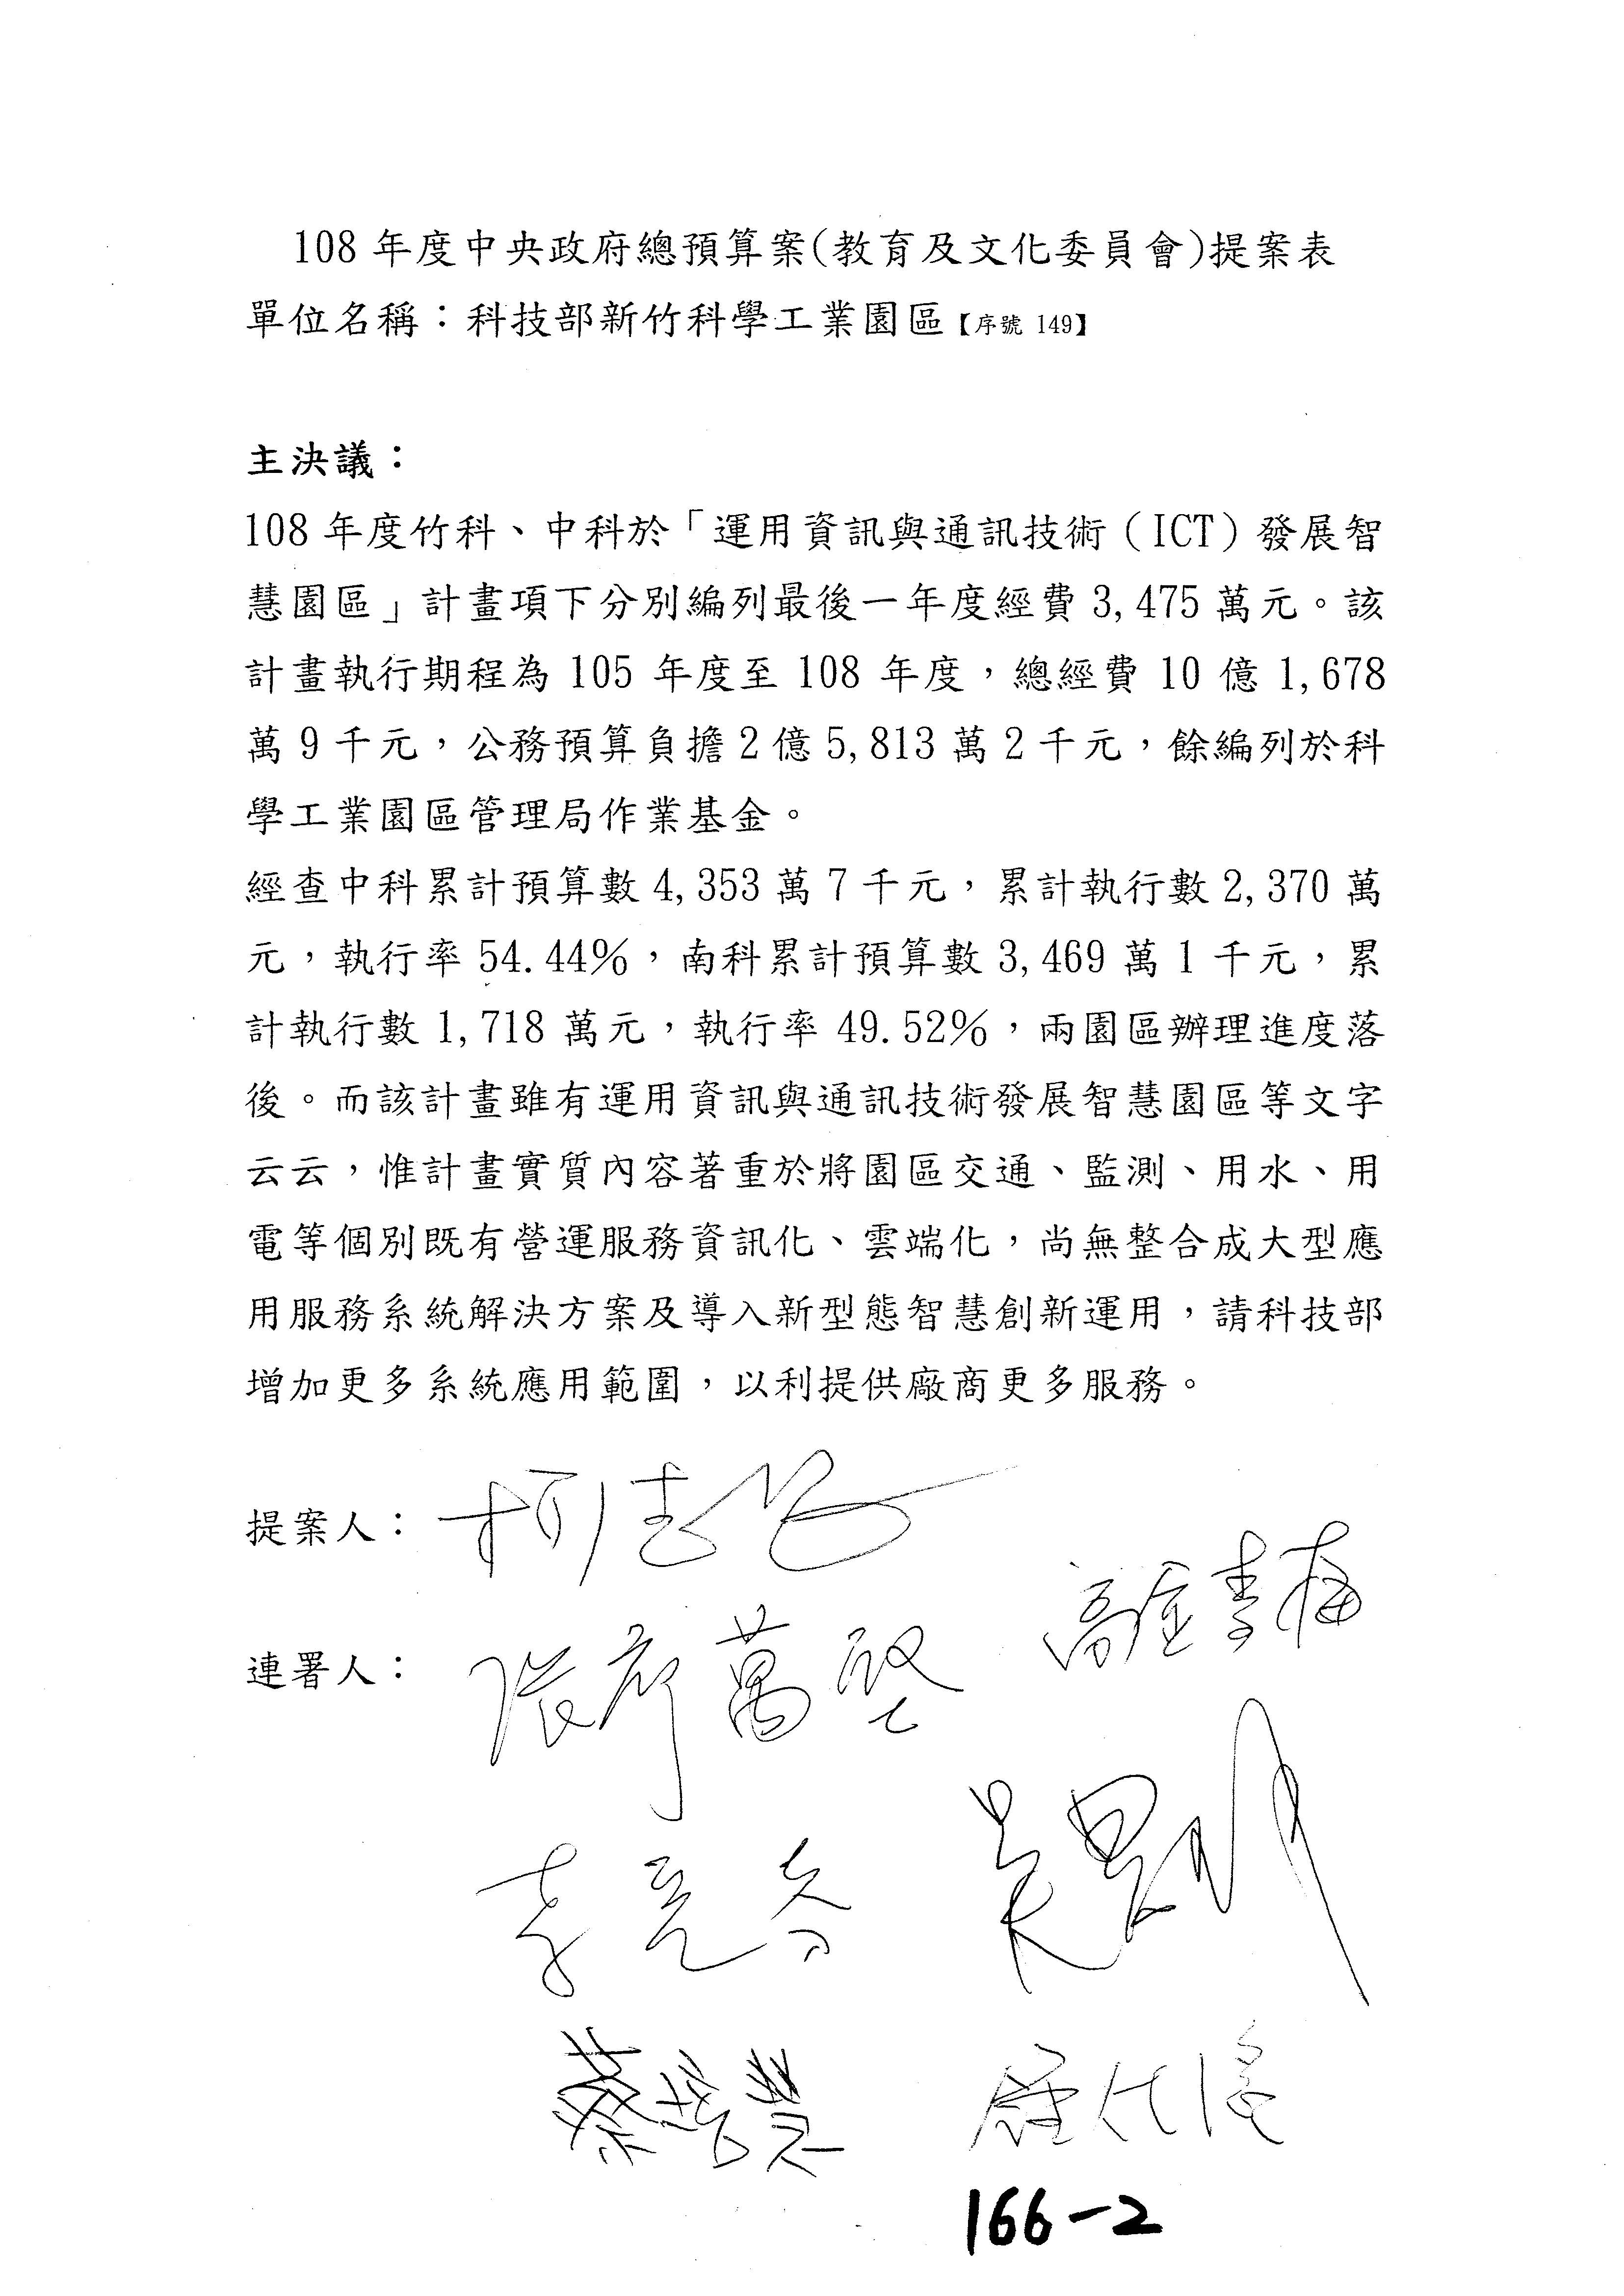 108 年度中央政府總預算案(教育及文化委員會)提案表
單位名稱：科技部新竹科學工業園區【序號 149】
主決議：
108 年度竹科、中科於「運用資訊與通訊技術（ICT）發展智
慧園區」計畫項下分別編列最後一年度經費 3,475 萬元。該
計畫執行期程為 105 年度至 108 年度，總經費 10 億 1,678
萬 9 千元，公務預算負擔 2 億 5,813 萬 2 千元，餘編列於科
學工業園區管理局作業基金。
經查中科累計預算數 4,353 萬 7 千元，累計執行數 2,370 萬
元，執行率 54.44%，南科累計預算數 3,469 萬 1 千元，累
計執行數 1,718 萬元，執行率 49.52%，兩園區辦理進度落
後。而該計畫雖有運用資訊與通訊技術發展智慧園區等文字
云云，惟計畫實質內容著重於將園區交通、監測、用水、用
電等個別既有營運服務資訊化、雲端化，尚無整合成大型應
用服務系統解決方案及導入新型態智慧創新運用，請科技部
增加更多系統應用範圍，以利提供廠商更多服務。
提案人：柯志恩
連署人：張廖萬堅 高金素梅
李彥秀
166-2